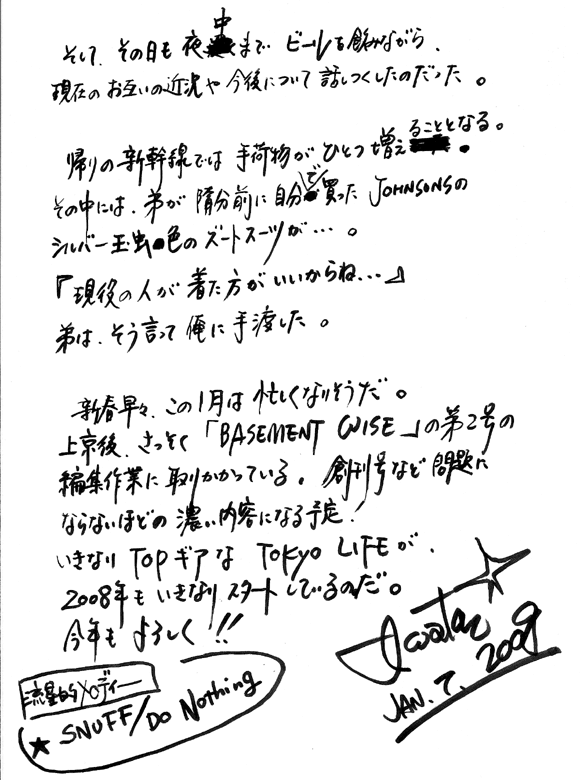 そして、その日も夜中まで ビールを飲みながら、
現在のお互いの近況や今後について話しつくしたのだった。
帰りの新幹線では手荷物がひとつ増えることとなる。
その中には、弟が随分前に自分で買ったJOHNSONSの
シルバー玉虫色のズートスーツが…。
『現役の人が着た方がいいからね…』
弟は、そう言って俺に手渡した。
新春早々、この1月は忙しくなりそうだ。
上京後、さっそく「BASEMENT WISE」の第2号の
編集作業に取りかかっている。創刊号など問題に
ならないほどの濃い内容になる予定!
いきなりTOPギアなTOKYO LIFEが、
2008年もいきなりスタートしているのだ。
今年もよろしく!!
JAN. 7. 2009
流星からメロディー
★ SNUFF/DO NOTHING